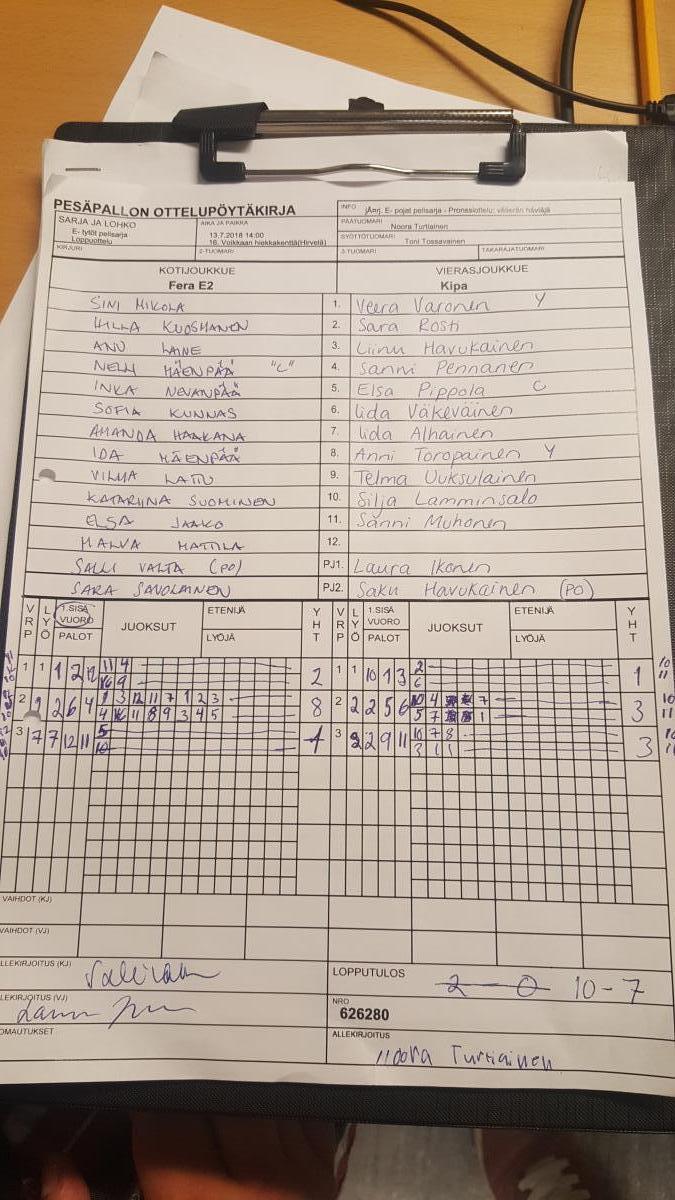 PESÄPALLON OTTELUPÖYTÄKIRJA
INFO jÄnrj. E- pojat pelisarja - Pronssiottelu: välierän häviäjä
SARJA JA LOHKO
E- tytöt pelisarja
Loppuottelu
AIKA JA PAIKKA
13.7.2018 14:00
16. Voikkaan hiekkakenttä(Hirvelä)
PÄÄTUOMARI
Noora Turtiainen
SYÖTTÖTUOMARI Toni Tossavainen
KIRJURI 2-TUOMARI 3-TUOMARI TAKARAJATUOMARI
KOTIJOUKKUE VIERASJOUKKUE
Fera E2 Kipa
SINI MIKOLA 1. Veera Varonen Y
HILLA KUOSMANEN 2. Sara Rosti
ANU LAINE 3. Liinu Havukainen
NELLI MÄENPÄÄ "C" 4. Sanni Pennanen
INKA NEVANPÄÄ 5. Elsa Pippola C
SOFIA KUNNAS 6. Iida Väkeväinen
AMANDA HAAKANA 7. Iida Alhainen
IDA MÄENPÄÄ 8. Anni Toropainen Y
VILMA LATTU 9. Telma Uuksulainen
KATARIINA SUOMINEN 10. Silja Lamminsalo
ELSA JAAKO 11. Sanni Muhonen
MALVA MATTILA 12.
SALLI VALTA (PO) PJ1. Laura Ikonen
SARA SAVOLAINEN PJ2. Saku Havukainen (PO)
VRP LYÖ 1.SISÄ VUORO PALOT JUOKSUT ETENIJÄ LYÖJÄ YHT VRP LYÖ 1.SISÄ VUORO PALOT JUOKSUT ETENIJÄ LYÖJÄ YHT
1 1 1 2 12 11 4 2 1 1 10 1 3 2 1
16 9 6
2 9 2 6 4 1 3 12 11 7 1 2 3 8 2 2 2 5 6 10 4 7 3
4 16 11 8 9 3 4 5 5 7 1
3 7 7 12 11 5 3 2 2 9 11 10 7 8 3
10 3 1 1
VAIHDOT (KJ)
VAIHDOT (VJ)
ALLEKIRJOITUS (KJ)
LOPPUTULOS 2 - 0 10-7
LLEKIRJOITUS (VJ)
NRO
626280
OMAUTUKSET
ALLEKIRJOITUS
Noora Turtiainen